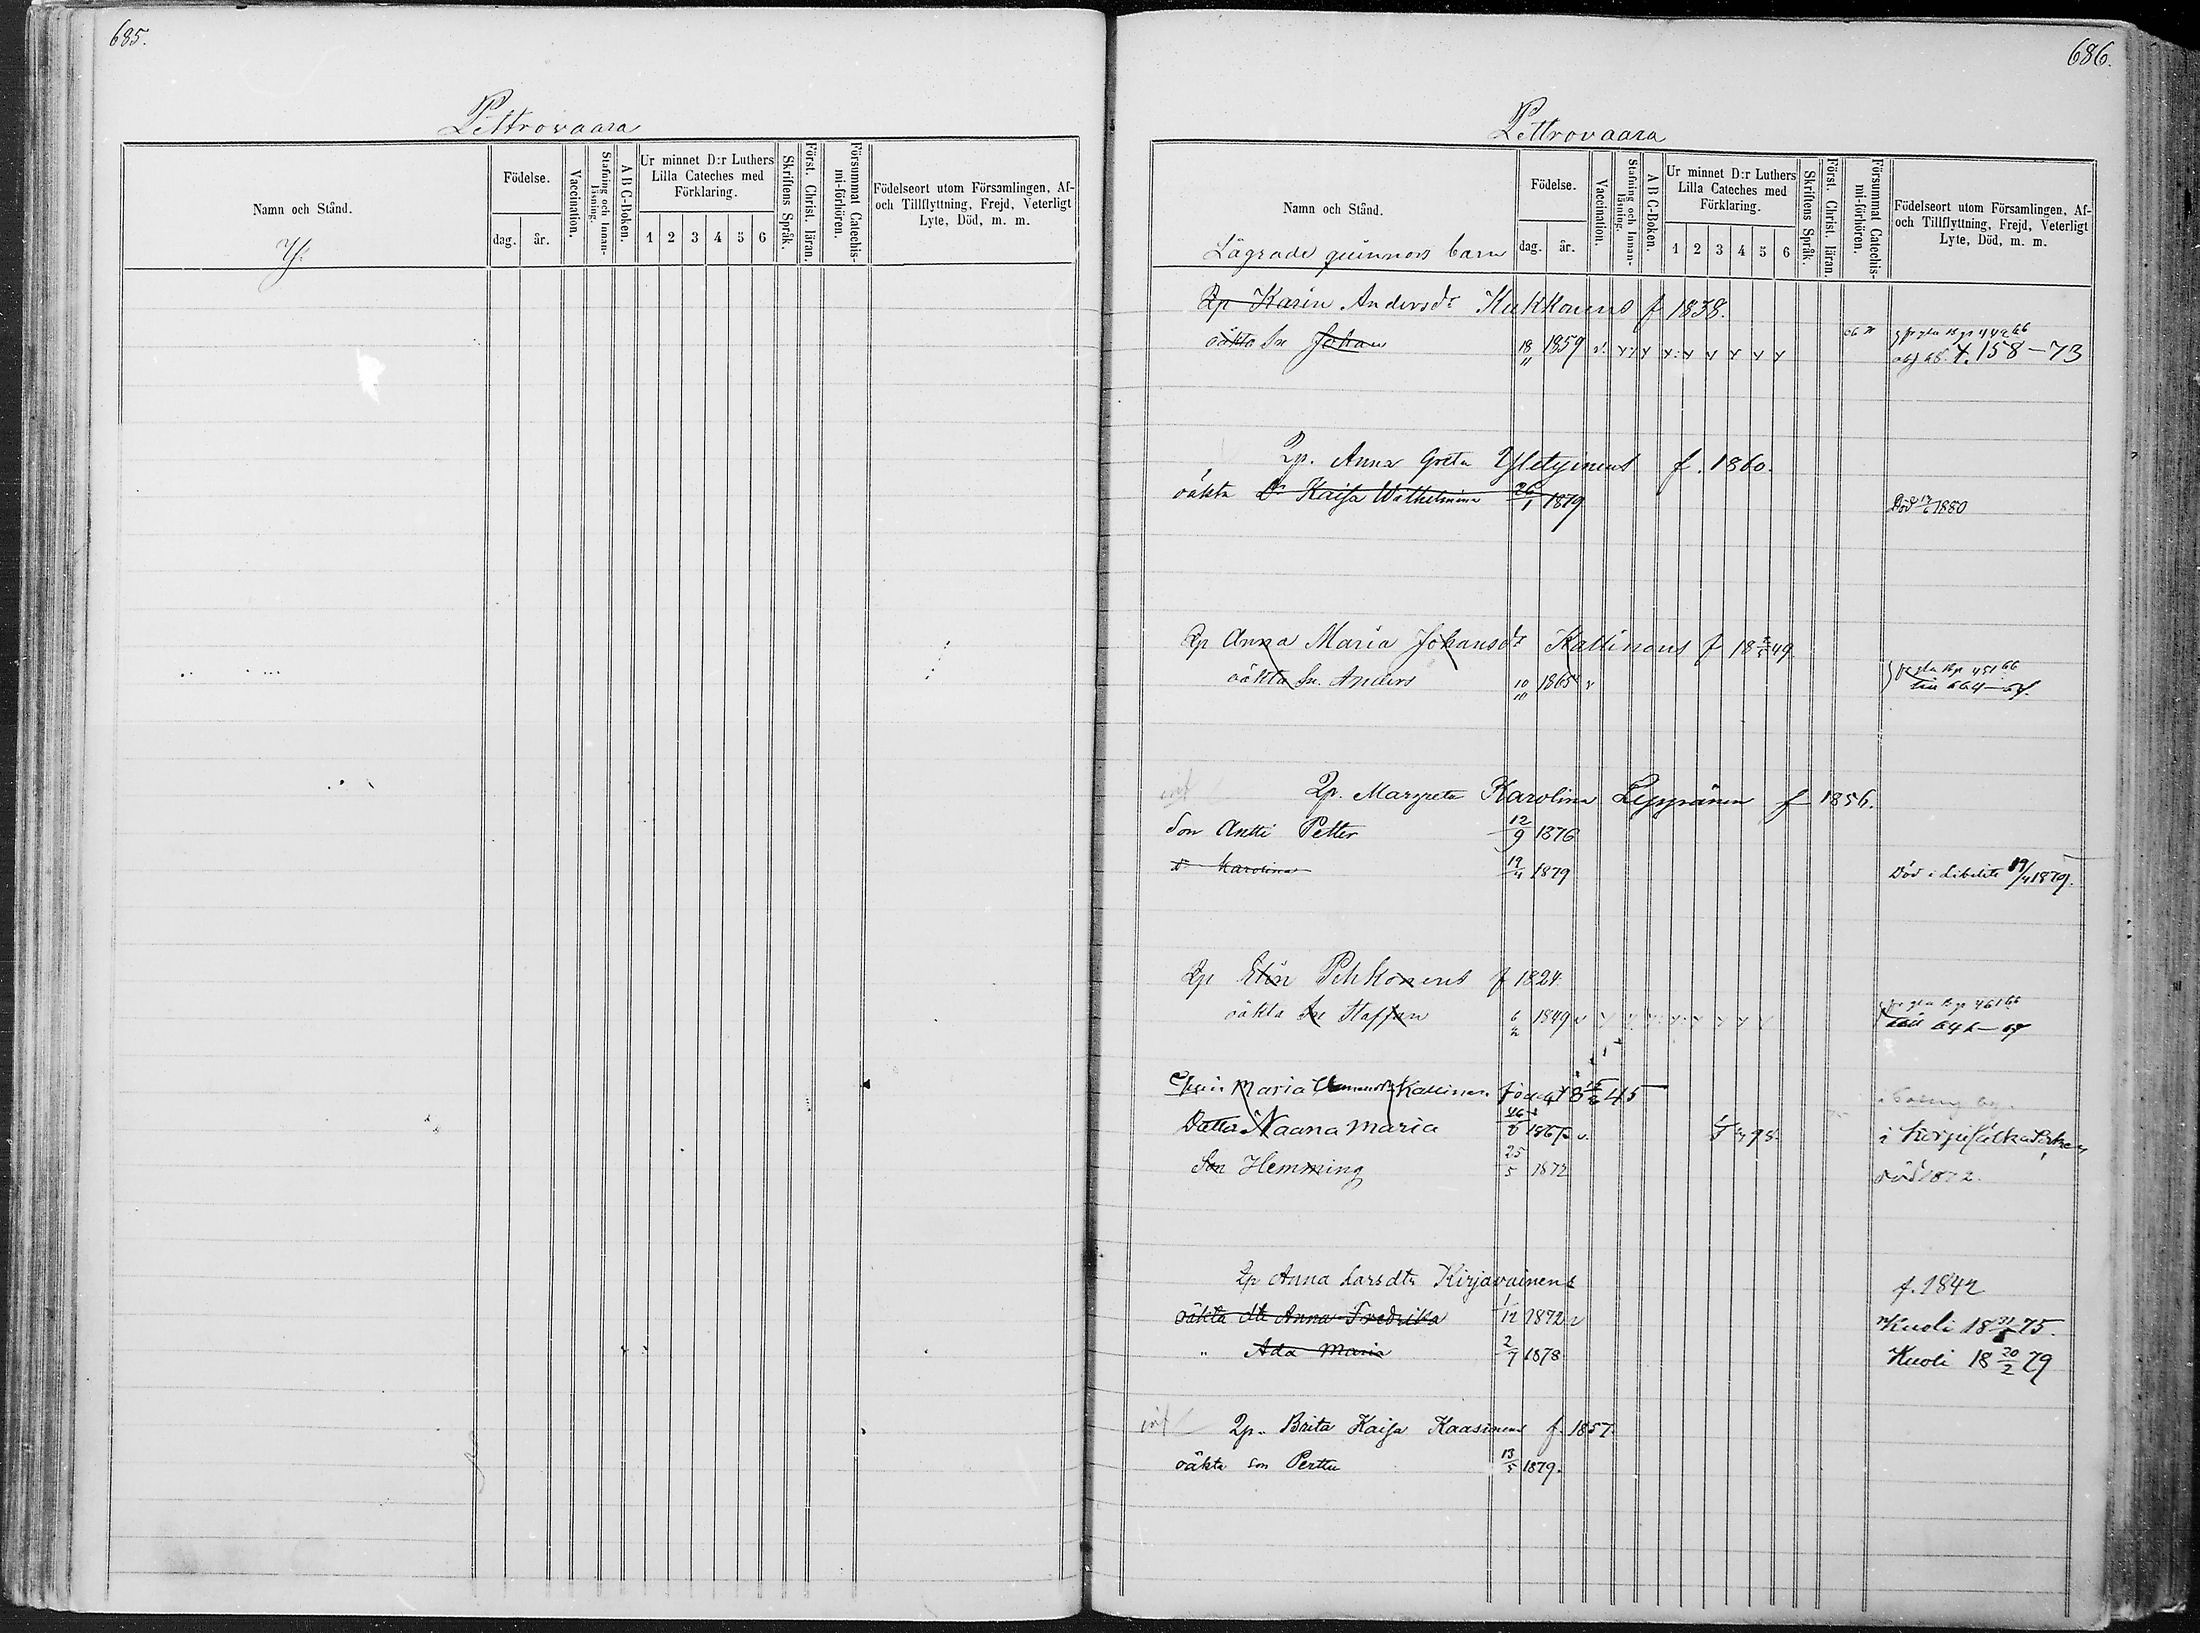 685.
Pettrovaara
Namn och Stånd.
Födelse.
dag. år.
Vaccination.
Stafning och Innan-läsning.
A B C-Boken.
Ur minnet D:r Luthers Lilla Cateches med Förklaring.
1 2 3 4 5 6
Skriftens Språk.
Först. Christ. läran.
Försummat Catechis-mi-förhören.
Födelseort utom Församlingen, Af- och Tillflyttning, Frejd, Veterligt Lyte, Död, m. m.
686.
Pettrovaara
Namn och Stånd.
Lägrade quinnors barn
Födelse.
dag. år.
Vaccination.
Stafning och Innan-läsning.
A B C-Boken.
Ur minnet D:r Luthers Lilla Cateches med Förklaring.
1 2 3 4 5 6
Skriftens Språk.
Först. Christ. läran.
Försummat Catechis-mi-förhören.
Födelseort utom Församlingen, Af- och Tillflyttning, Frejd, Veterligt Lyte, Död, m. m.
Qp Karin Andersdr Kukkonens f 1838.
oäkta Sn Johan 18/11 1859 158-73
Qp. Anna Greta Yletyinens f. 1860.
oäkta Dr Kaisa Wilhelmina 26/1 1879 Död 17/6 1880
Qp Anna Maria Johansdr Kallinens f 18 49
oäkta Sn. Anders 10/10 1865 v
Qp. Margreta Karolina Leppänen f 1856.
Son Antti Petter 12/9 1876
Dr Karolina 19/4 1879 Död i Libelits 19/4 1879.
Qp Elin Pehkonens f 1824
oäkta Sn Staffan 6/2 1849
Maria Kallinen född 18 45
Dotter Naana Maria
Son Hemming 25/5 1872 död 1872.
Qp Anna Larsdtr Kirjavainens f. 1842
oäkta dtr Anna Fredrika 1/12 1872 v Kuoli 18 75.
" Ada Maria 2/7 1878 Kuoli 18 20/2 79
Qp. Brita Kaisa Kaasinens f. 1857.
oäkta son Perttu 13/5 1879.